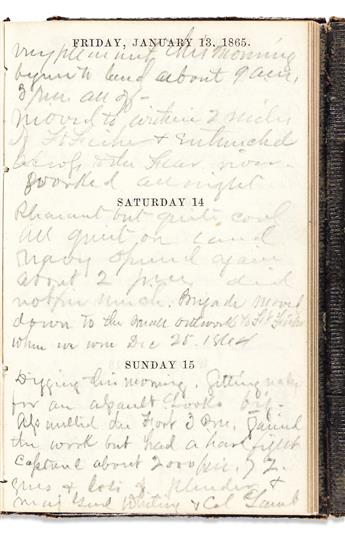 FRIDAY, JANUARY 13, 1865.
very pleasant this morning
begun to land about 9 am,
3 pm all off -
moved to within 2 miles
of Ft Fisher & entrenched
across to the Fear river -
worked all night
SATURDAY 14
Pleasant but quite cool
all quiet on land
Navy opened again
about 2 p.m. did
not fire much. Brigade moved
down to the small outwork to Ft Fisher
when we were Dec 25. 1864
SUNDAY 15
Digging this morning. Getting ready
for an assault. Looks big -
Assaulted the Fort 3 pm. gained
the work but had a hard fight
captured about 2000 pris, 72
guns & lots of plunder &
Maj Genl Whiting & Col Lamb